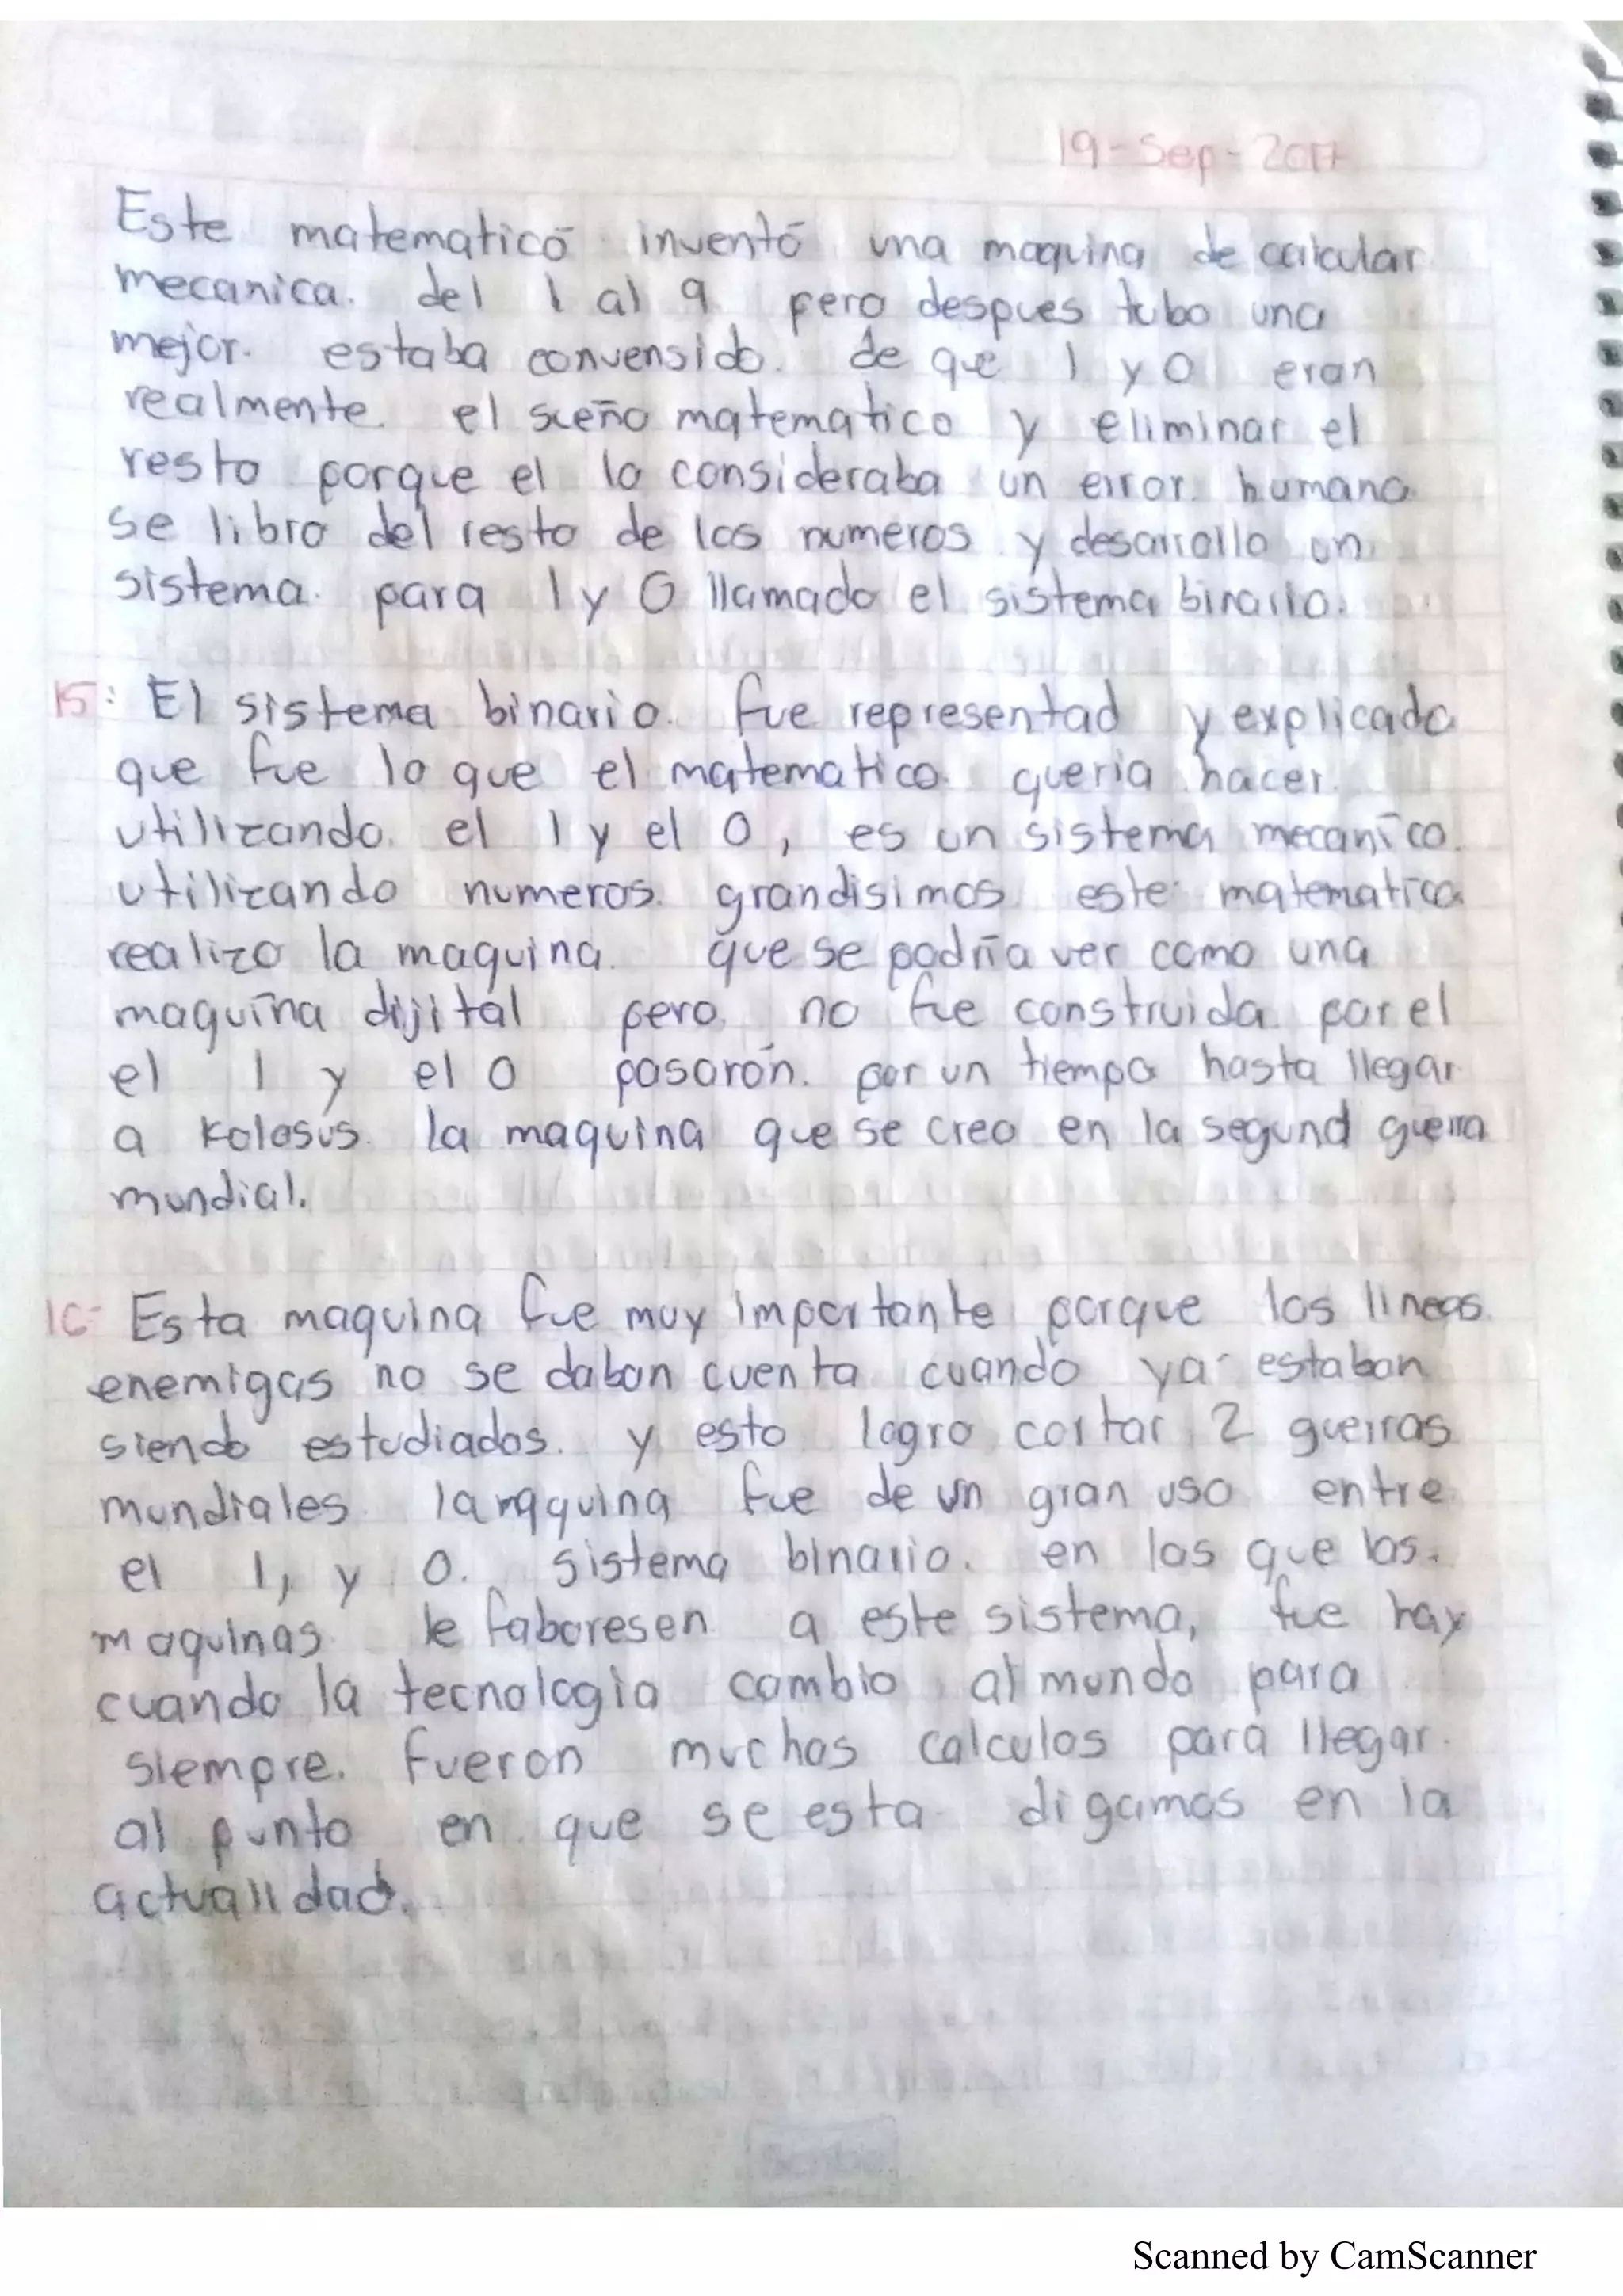 19-Sep-2017
Este matematico inventó una maquina de calcular
mecanica. del 1 al 9 pero despues tubo una
mejor. estaba convensido. de que 1 y 0 eran
realmente. el sueño matematico y eliminar el
resto porque el lo consideraba un error. humano
se libro del resto de los numeros y desarrollo un
sistema. para 1 y 0 llamado el sistema binario.
15: El sistema binario. fue representad y explicado
que fue lo que el matematico. queria hacer.
utilizando. el 1 y el 0, es un sistema mecanico.
utilizando numeros. grandisimos este matematico
realizo la maquina. que se podria ver como una
maquina dijital pero. no fue construida. por el
el 1 y el 0 pasaron. por un tiempo hasta llegar
a Kolosus. la maquina que se creo en la segund guerra
mundial.
16- Esta maquina fue muy importante porque las lineas.
enemigas no se daban cuenta cuando ya estaban
siendo estudiados. y esto logro cortar 2 guerras
mundiales la maquina fue de un gran uso entre
el 1, y 0. sistema binario. en las que las.
maquinas le faboresen a este sistema, fue hay
cuando la tecnologia cambio al mundo para
siempre. fueron muchos calculos para llegar.
al punto en que se esta digamos en la
actualidad.
Scribe
Scanned by CamScanner